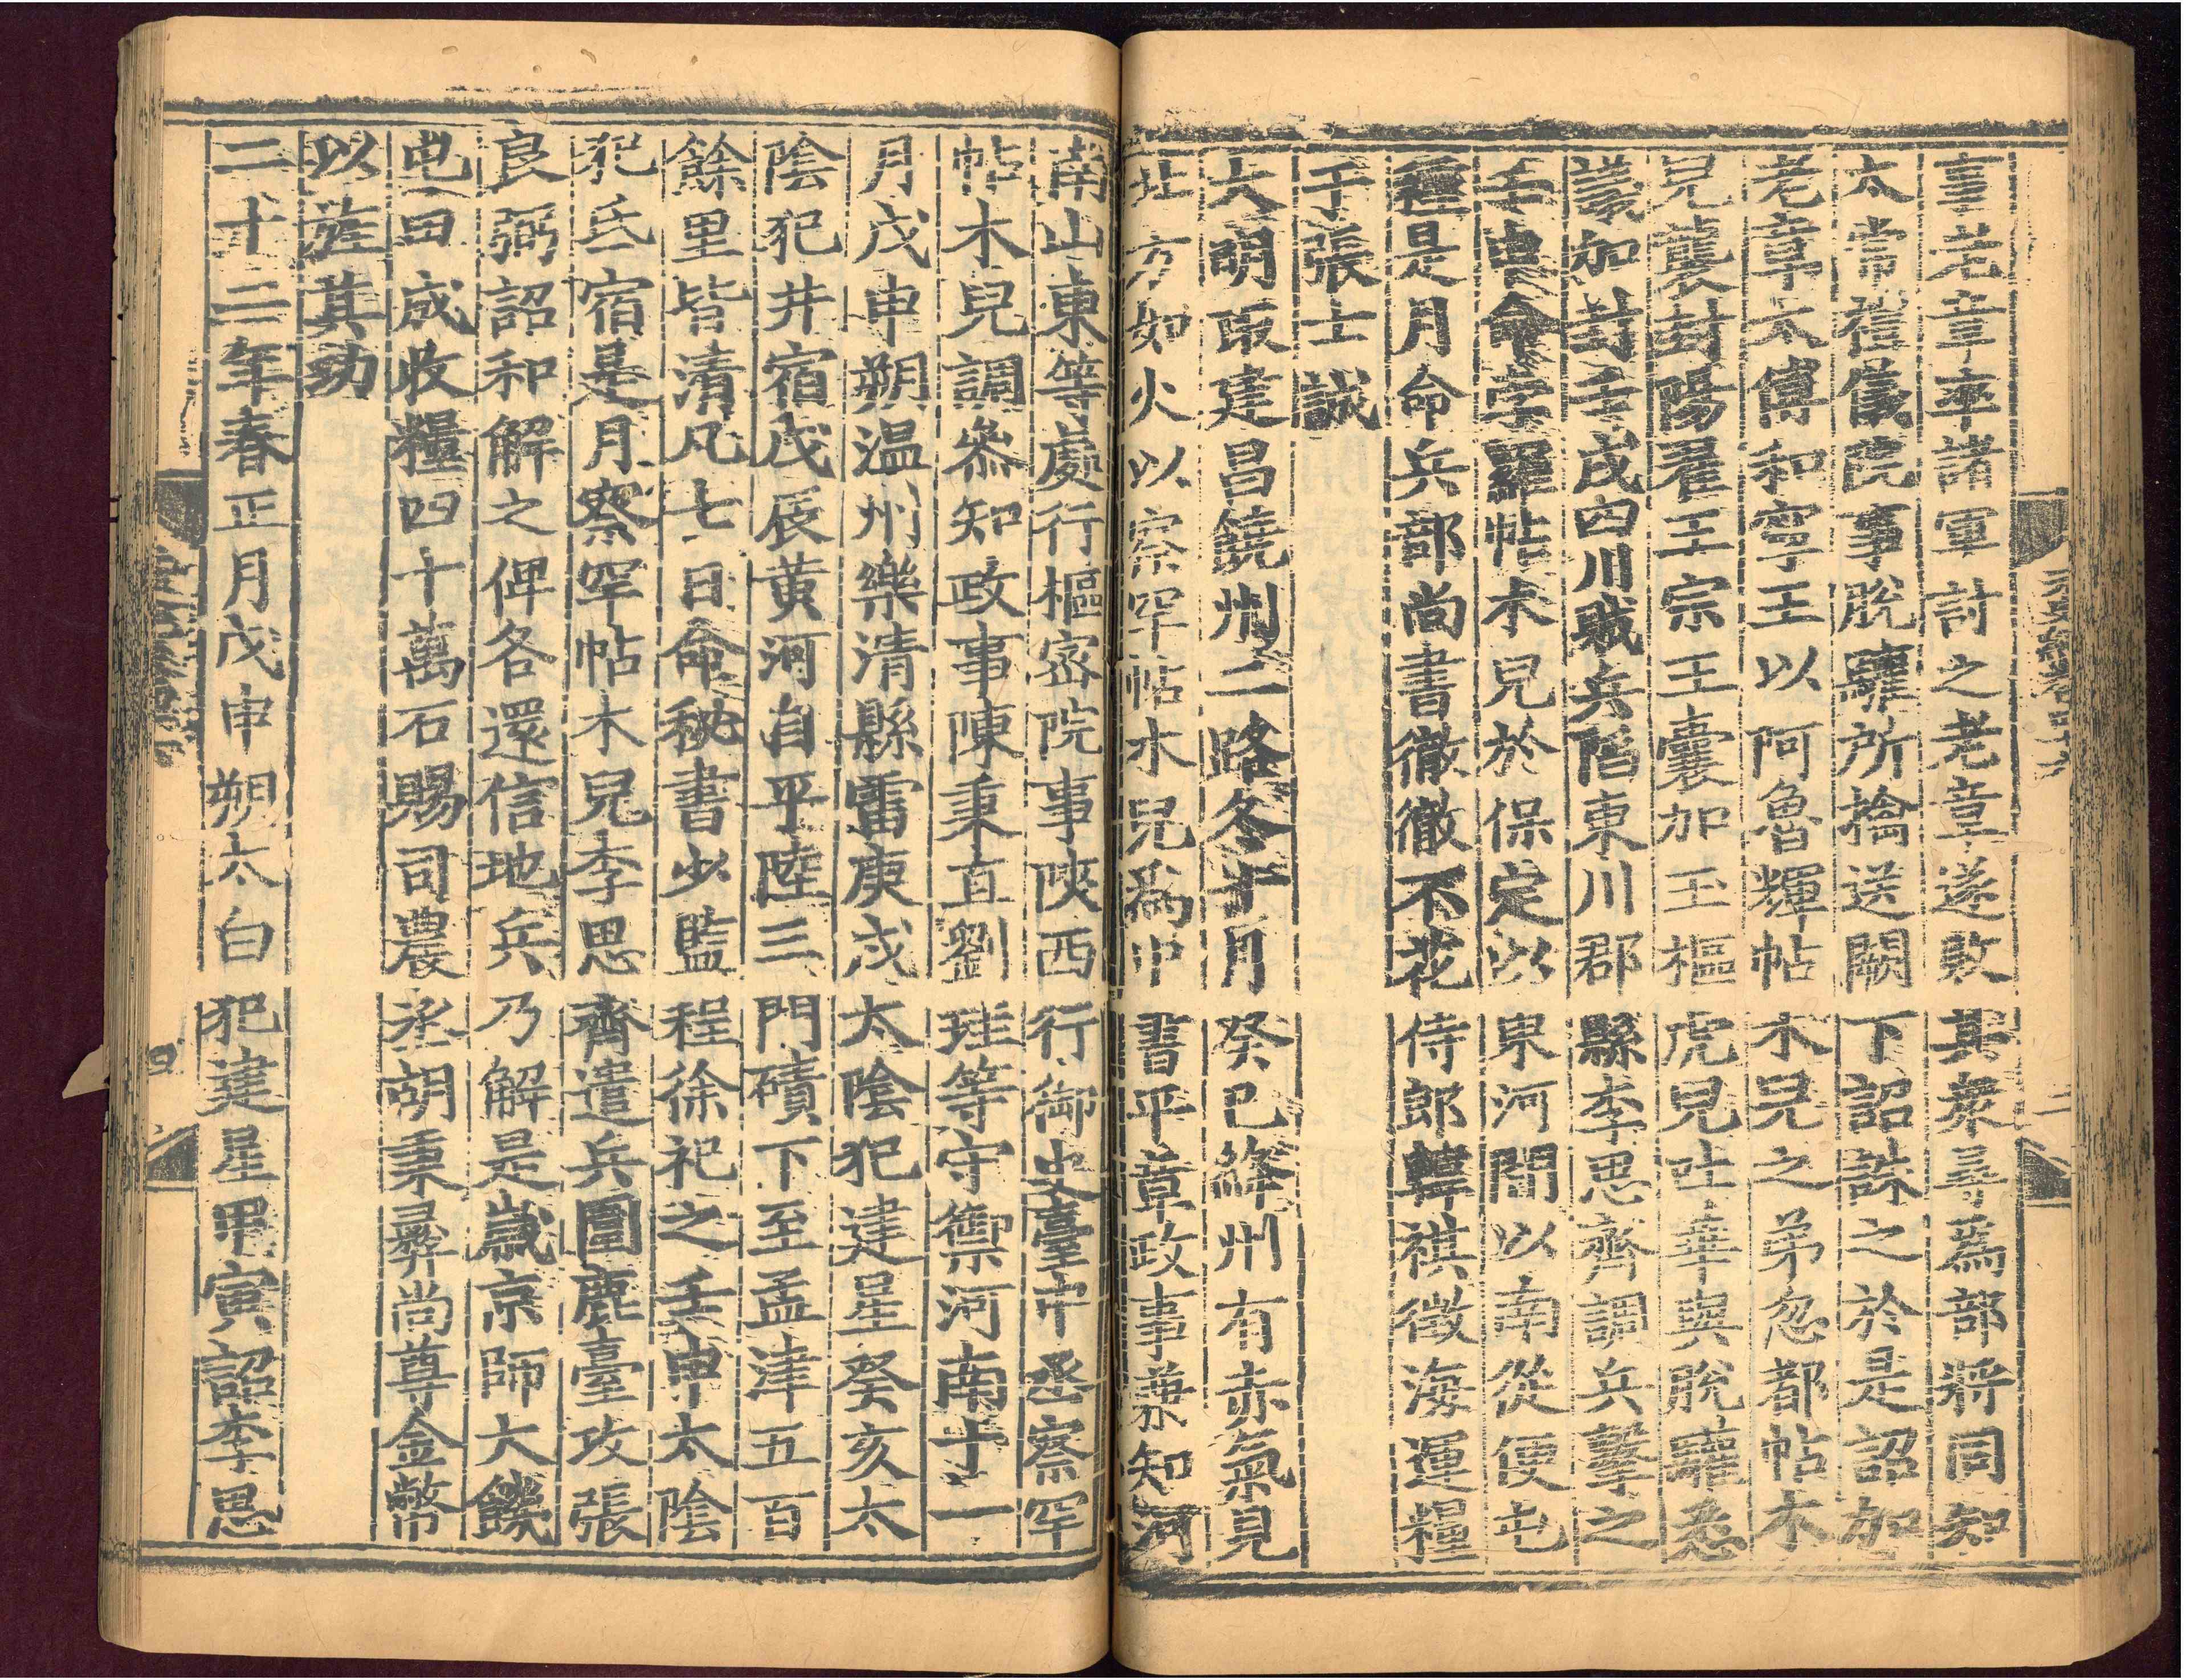 言老章率諸軍討之老章遂敗其衆尋爲部將同知
太常禮儀院事脫驩所擒送闕下詔誅之於是詔加
老章太傅和寧王以阿魯輝帖木兒之弟忽都帖木
兒襲封陽翟王宗王囊加玉樞虎兒吐華與脫驩悉
議加封壬戌四川賊兵陷東川郡縣李思齊調兵擊之
壬申命孛羅帖木兒於保定以東河間以南從便屯
種是月命兵部尚書徹徹不花侍郎韓祺徵海運糧
于張士誠
大明取建昌饒州二路冬十月癸巳絳州有赤氣見
北方如火以察罕帖木兒爲中書平章政事兼知河
南山東等處行樞密院事陝西行御史臺中丞察罕
帖木兒調叅知政事陳秉直劉珪等守禦河南十一
月戊申朔温州樂清縣雷庚戌太陰犯建星癸亥太
陰犯井宿戊辰黄河自平陸三門磧下至孟津五百
餘里皆清凡七日命秘書少監程徐祀之壬申太陰
犯氐宿是月察罕帖木兒李思齊遣兵圍鹿臺攻張
良弼詔和解之俾各還信地兵乃解是歲京師大饑
屯田成收糧四十萬石賜司農丞胡秉彝尚尊金幣
以旌其功
二十二年春正月戊申朔太白犯建星甲寅詔李思
四